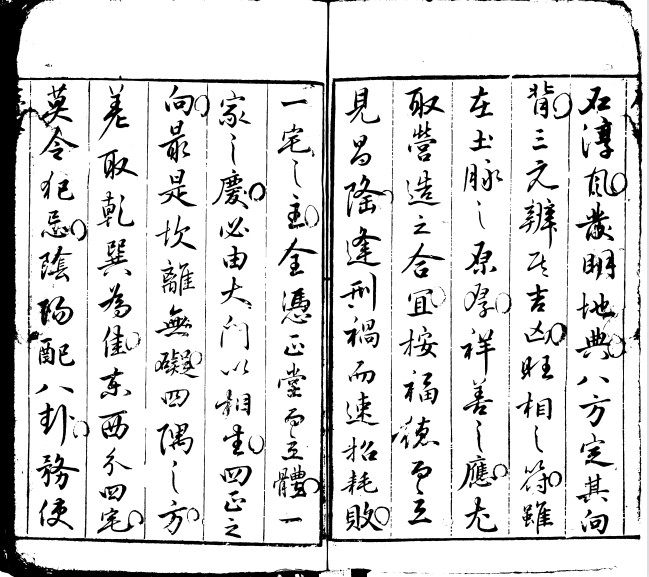 石淳風發明地典八方定其向
背三元辨其吉凶旺相之符雖
在土脉之原孕祥善之應尤
取營造之合宜按福德而立
見昌隆逢刑禍而速招耗敗
一宅之主全憑正堂而立體一
家之慶必由大门以相生四正之
向最是坎離無礙四隅之方
羌取乾巽為佳東西分四宅
莫令犯忌陰陽配八卦務使